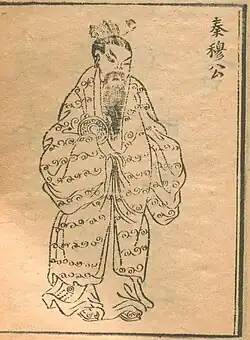 秦穆公